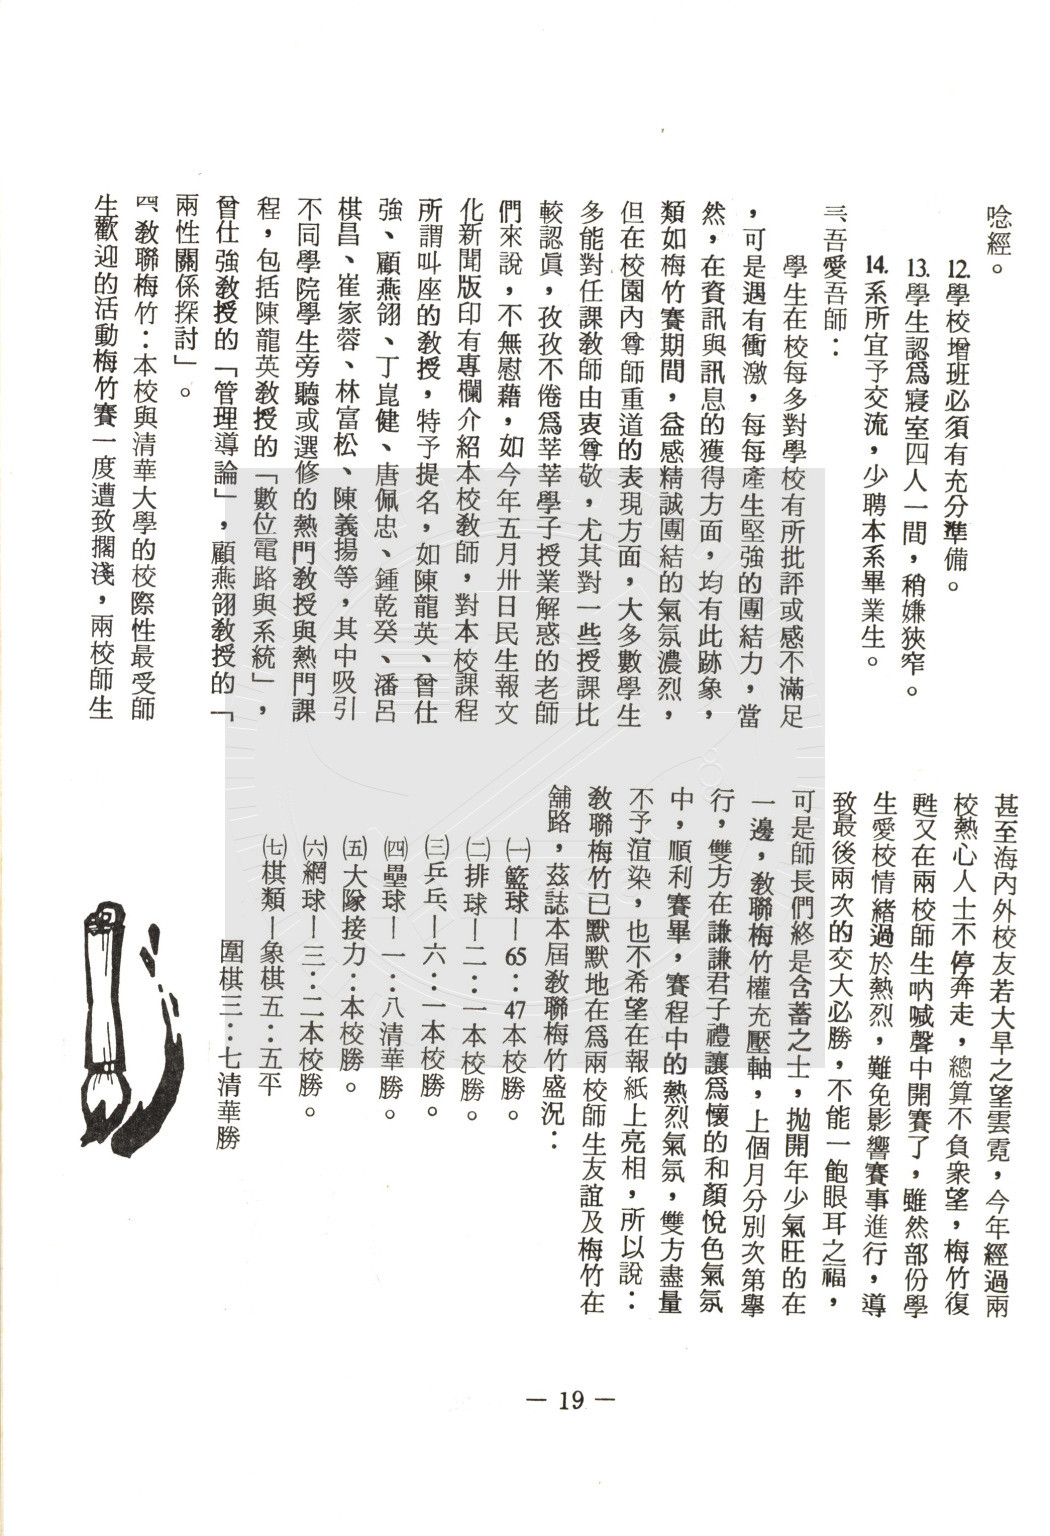 唸經。
12.學校增班必須有充分準備。
13.學生認爲寢室四人一間，稍嫌狹窄。
14.系所宜予交流，少聘本系畢業生。
三、吾愛吾師：
學生在校每多對學校有所批評或感不滿足
，可是遇有衝激，每每產生堅強的團結力，當
然，在資訊與訊息的獲得方面，均有此跡象，
類如梅竹賽期間，益感精誠團結的氣氛濃烈，
但在校園內尊師重道的表現方面，大多數學生
多能對任課教師由衷尊敬，尤其對一些授課比
較認眞，孜孜不倦爲莘莘學子授業解惑的老師
們來說，不無慰藉，如今年五月卅日民生報文
化新聞版印有專欄介紹本校教師，對本校課程
所謂叫座的教授，特予提名，如陳龍英、曾仕
強、顧燕翎、丁崑健、唐佩忠、鍾乾癸、潘呂
棋昌、崔家蓉、林富松、陳義揚等，其中吸引
不同學院學生旁聽或選修的熱門教授與熱門課
程，包括陳龍英教授的「數位電路與系統」，
曾仕強教授的「管理導論」，顧燕翎教授的「
兩性關係探討」。
四、教聯梅竹：本校與清華大學的校際性最受師
生歡迎的活動梅竹賽一度遭致擱淺，兩校師生
甚至海內外校友若大旱之望雲霓，今年經過兩
校熱心人士不停奔走，總算不負衆望，梅竹復
甦又在兩校師生吶喊聲中開賽了，雖然部份學
生愛校情緒過於熱烈，難免影響賽事進行，導
致最後兩次的交大必勝，不能一飽眼耳之福，
可是師長們終是含蓄之士，拋開年少氣旺的在
一邊，教聯梅竹權充壓軸，上個月分別次第舉
行，雙方在謙謙君子禮讓爲懷的和顏悅色氣氛
中，順利賽畢，賽程中的熱烈氣氛，雙方盡量
不予渲染，也不希望在報紙上亮相，所以說：
教聯梅竹已默默地在爲兩校師生友誼及梅竹在
舖路，茲誌本屆教聯梅竹盛況：
㈠籃球—65：47本校勝。
㈡排球—二：一本校勝。
㈢乒乓—六：一本校勝。
㈣壘球—一：八清華勝。
㈤大隊接力：本校勝。
㈥網球—三：二本校勝。
㈦棋類—象棋五：五平
圍棋三：七清華勝
— 19 —